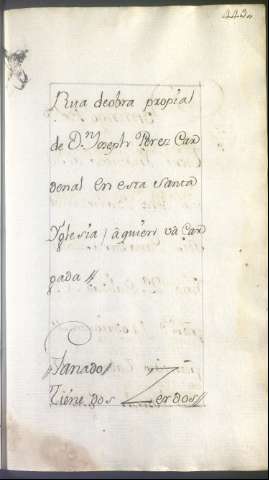 2232
Rua deobra propial
de D.n Joseph Perez Car
denal en esta santa
Yglesia / aquien va Car
gada //
// Ganado //
Tiene dos Zerdos //